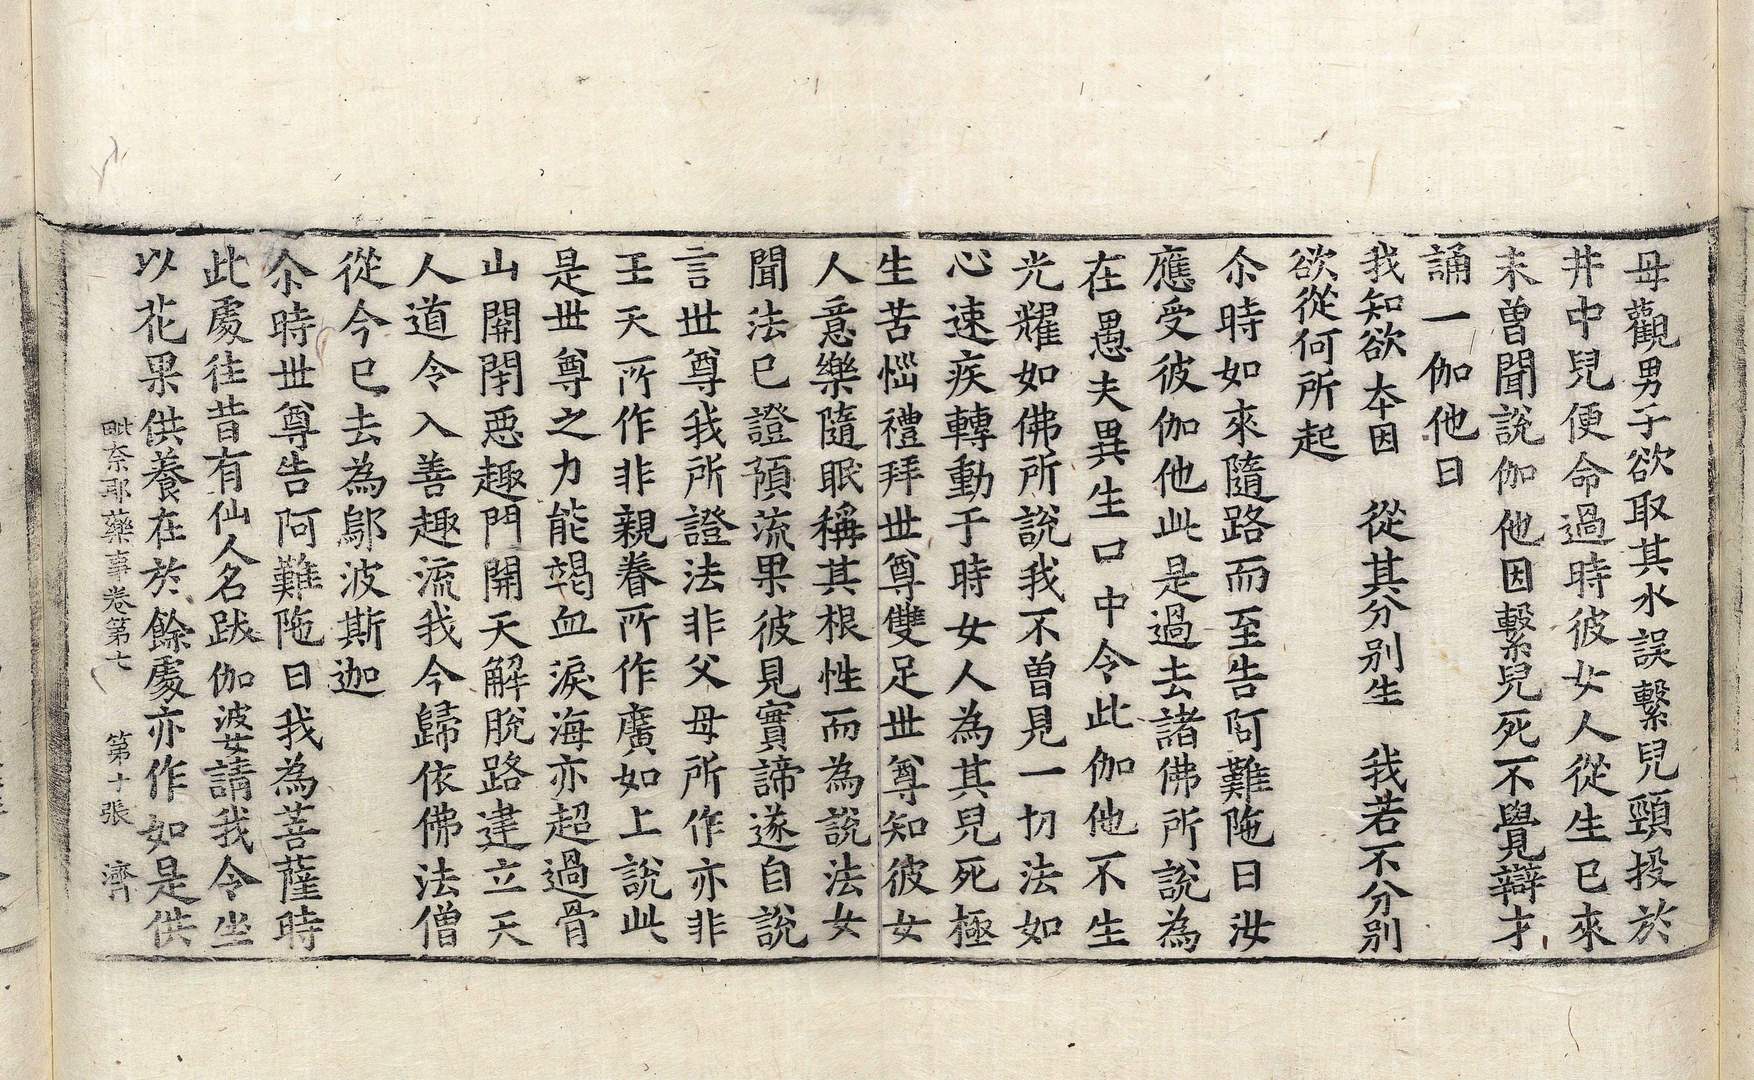 母觀男子欲取其水誤繫兒頸投於
井中兒便命過時彼女人從生已來
未曽聞說伽他因繫兒死不覺辯才
誦一伽他曰
我知欲夲因　從其分別生　我若不分別
欲從何所起
尒時如來隨路而至告阿難陁曰汝
應受彼伽他此是過去諸佛所說為
在愚夫異生口中令此伽他不生
光耀如佛所說我不曽見一切法如
心速疾轉動于時女人為其兒死極
生苦惱禮拜世尊雙足世尊知彼女
人意樂隨眠稱其根性而為說法女
聞法已證預流果彼見實諦遂自說
言世尊我所證法非父母所作亦非
王天所作非親眷所作廣如上說此
是世尊之力能竭血淚海亦超過骨
山關閇惡趣門開天解脫路建立天
人道令入善趣流我今歸依佛法僧
從今已去為鄔波斯迦
尒時世尊告阿難陁曰我為菩薩時
此處往昔有仙人名跋伽婆請我令坐
以花果供養在於餘處亦作如是供
毗奈耶藥事卷第七　第十張　濟